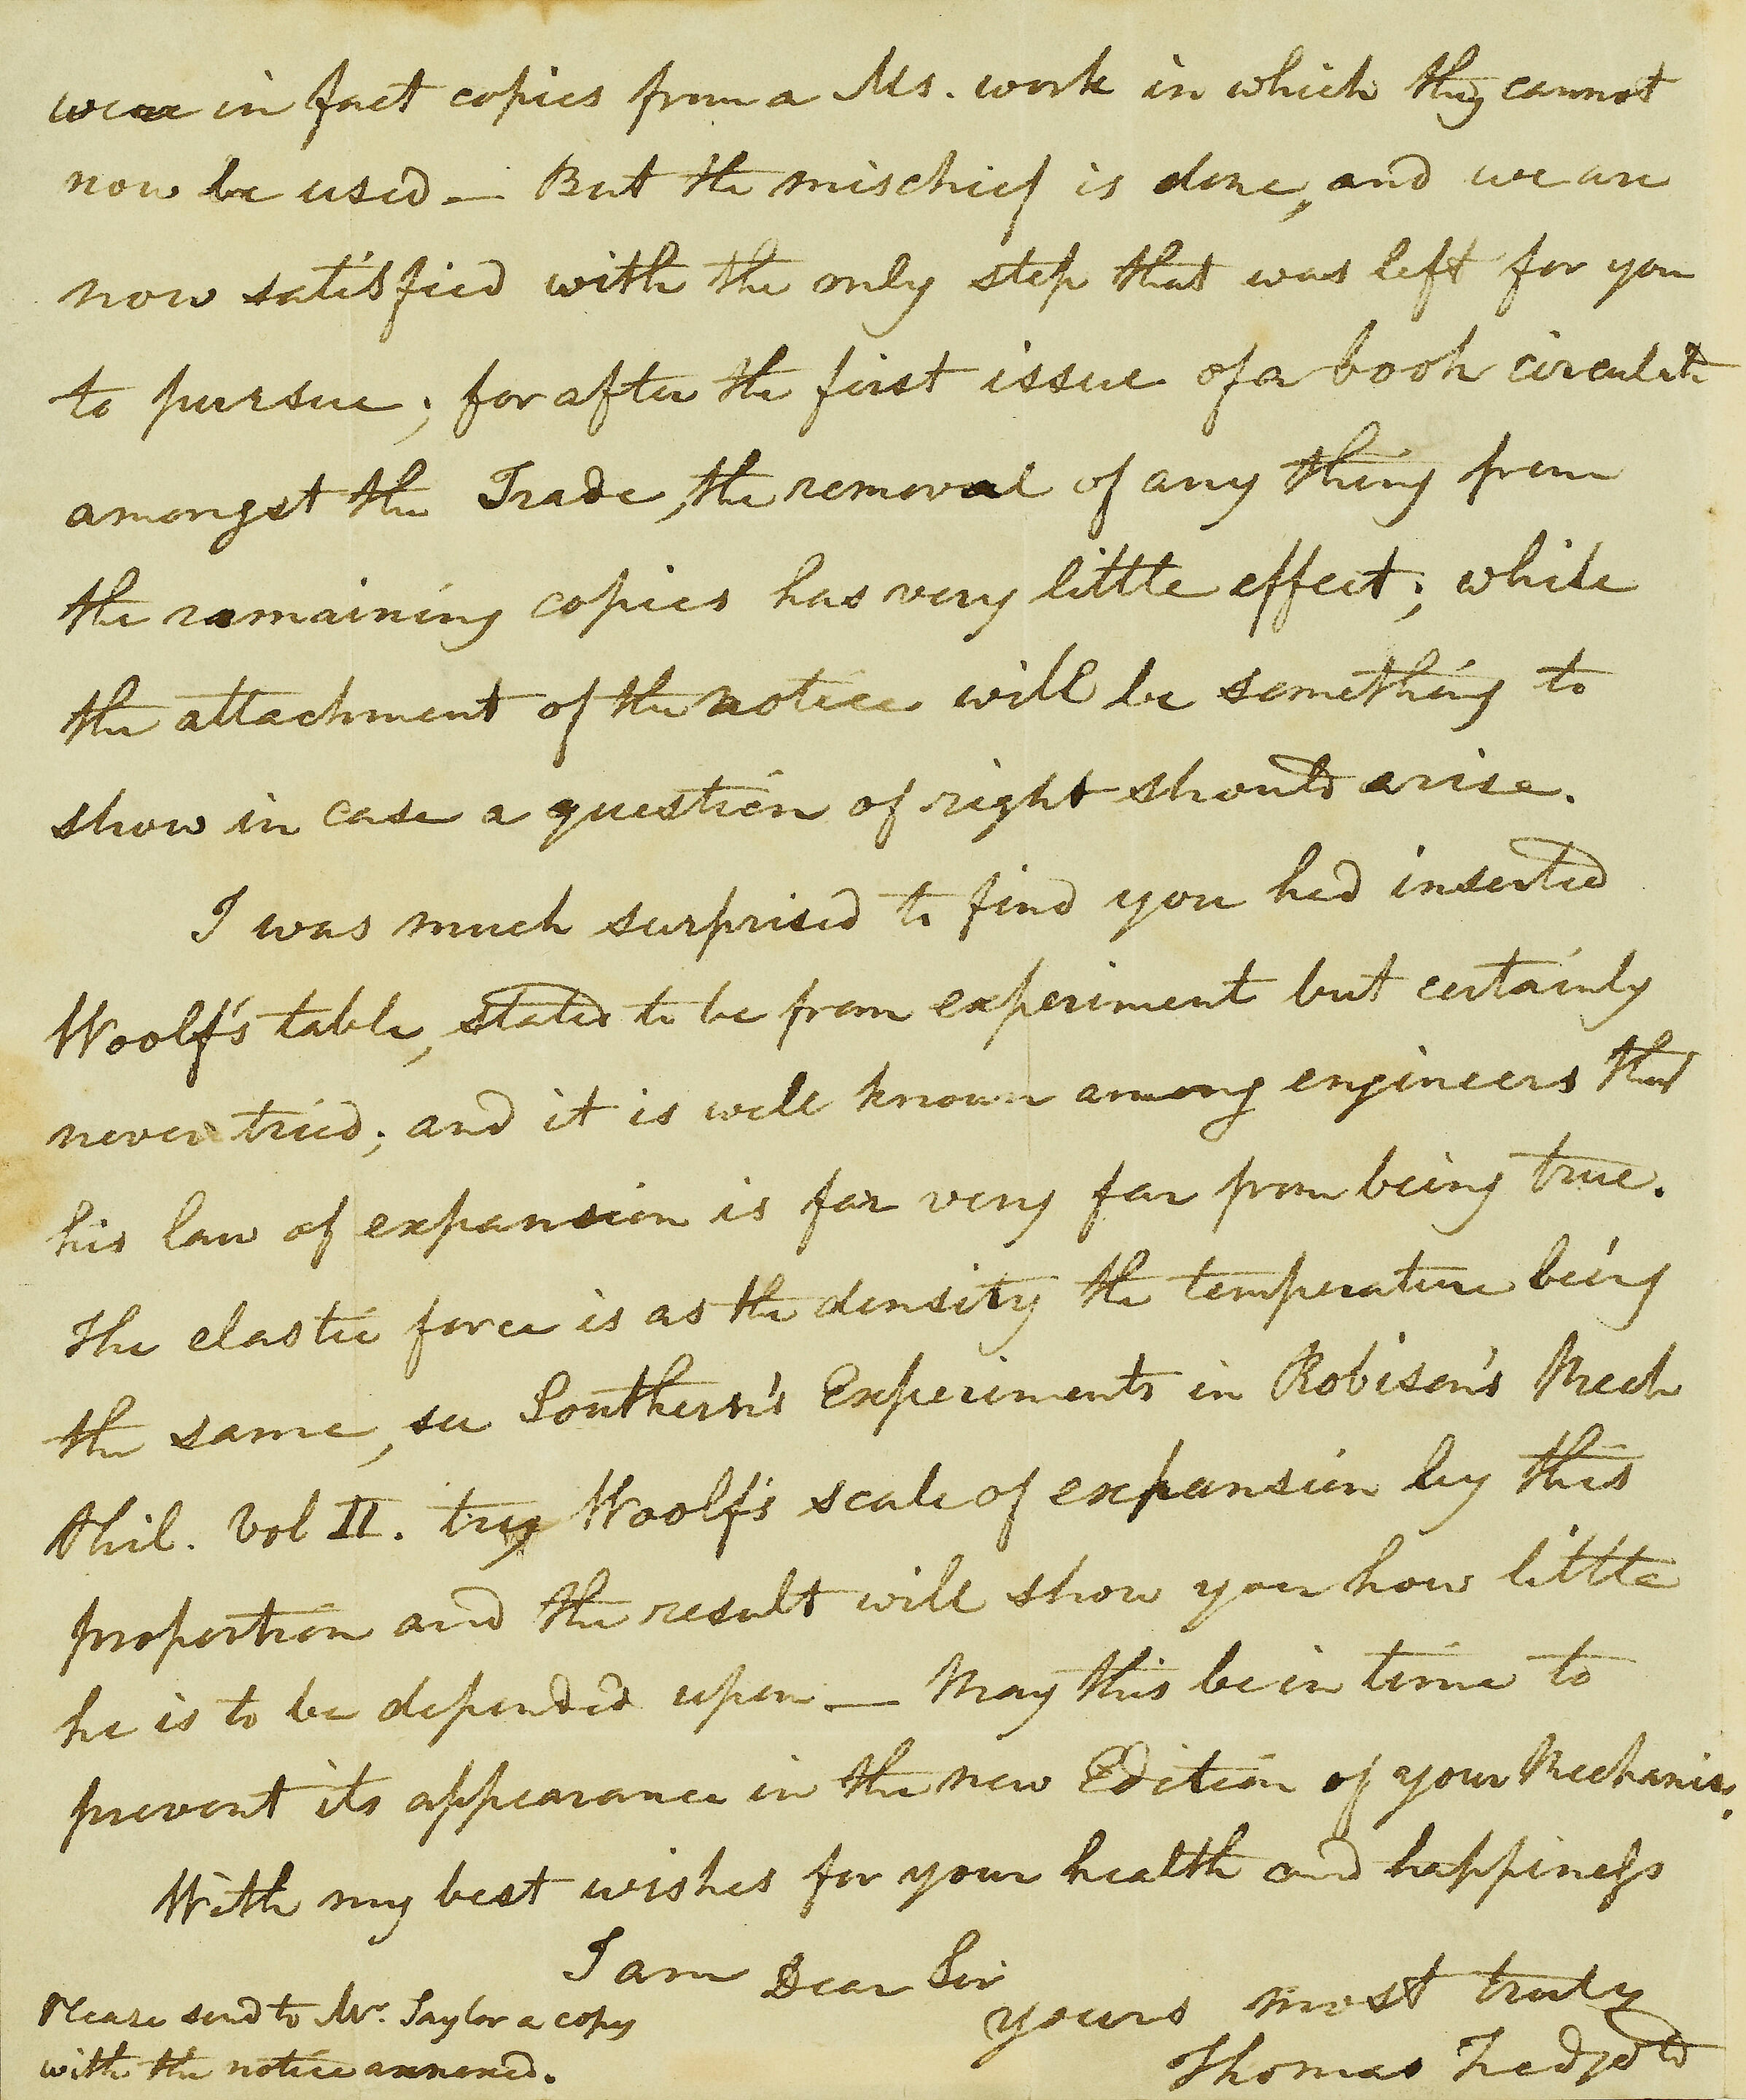 were in fact copies from a Ms. work in which they cannot
now be used — But the mischief is done, and we are
now satisfied with the only step that was left for you
to pursue; for after the first issue of a book circulate
amongst the Trade, the removal of any thing from
the remaining copies has very little effect; while
the attachment of the notice will be something to
show in case a question of right should arise.
I was much surprised to find you had inserted
Woolf's table, stated to be from experiment but certainly
never tried; and it is well known among engineers that
his law of expansion is far very far from being true.
The elastic force is as the density the temperature being
the same, see Southern's Experiments in Robison's Mech
Phil. Vol II. try Woolf's scale of expansion by this
proportion and the result will show you how little
he is to be depended upon — May this be in time to
prevent its appearance in the new Edition of your Mechanics.
With my best wishes for your health and happiness
I am Dear Sir
yours most truly
Thomas Tredgold
Please send to Mr. Taylor a copy
with the notice annexed.